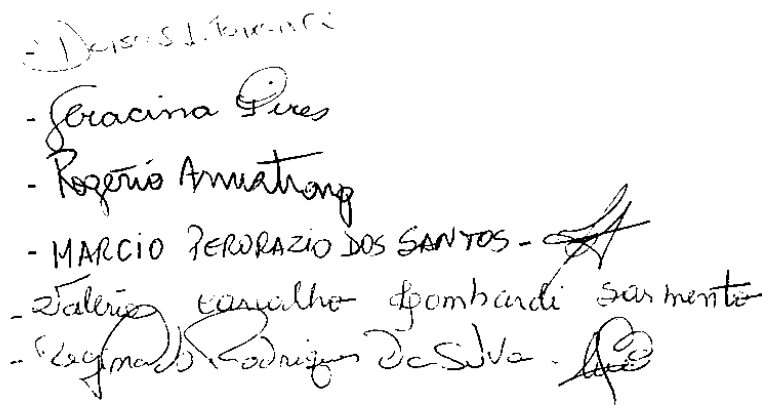 - Geracina Pires
- Rogério Armstrong
- MARCIO PERORAZIO DOS SANTOS -
- Valéria Carvalho Lombardi Sarmento
- Reginaldo Rodrigues Da Silva -